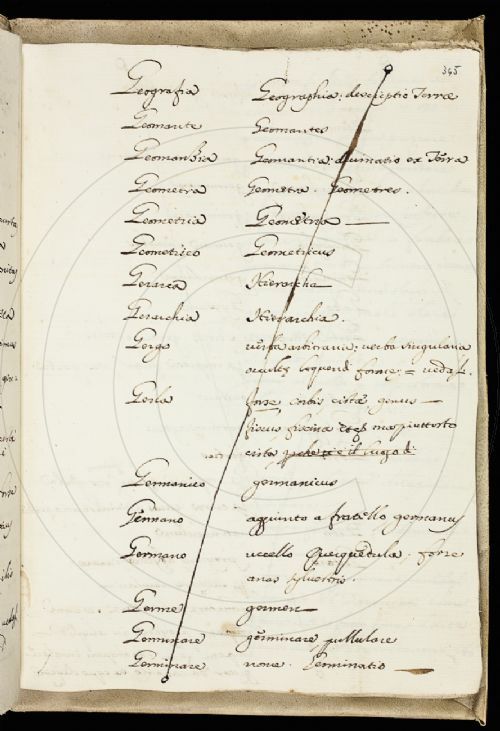 345
Geografia Geographia: descriptio Terræ
Geomante Geomantes
Geomanzia Geomantia: diuinatio ex Terra
Geometra Geometra. Geometres.
Geometria Geometria
Geometrico Geometricus
Gerarca Hierarcha
Gerarchia Hierarchia.
Gergo verba arbitraria: verba
loquendi formę = vedi
Gerla forse corbis cistæ genus
ficus fiscina mà piuttosto
cista
Germanico germanicus
Germano aggiunto a fratello germanus
Germano uccello Querquedula. forse
anas
Germe germen
Germinare germinare pullulare
Germinare nome. Germinatio